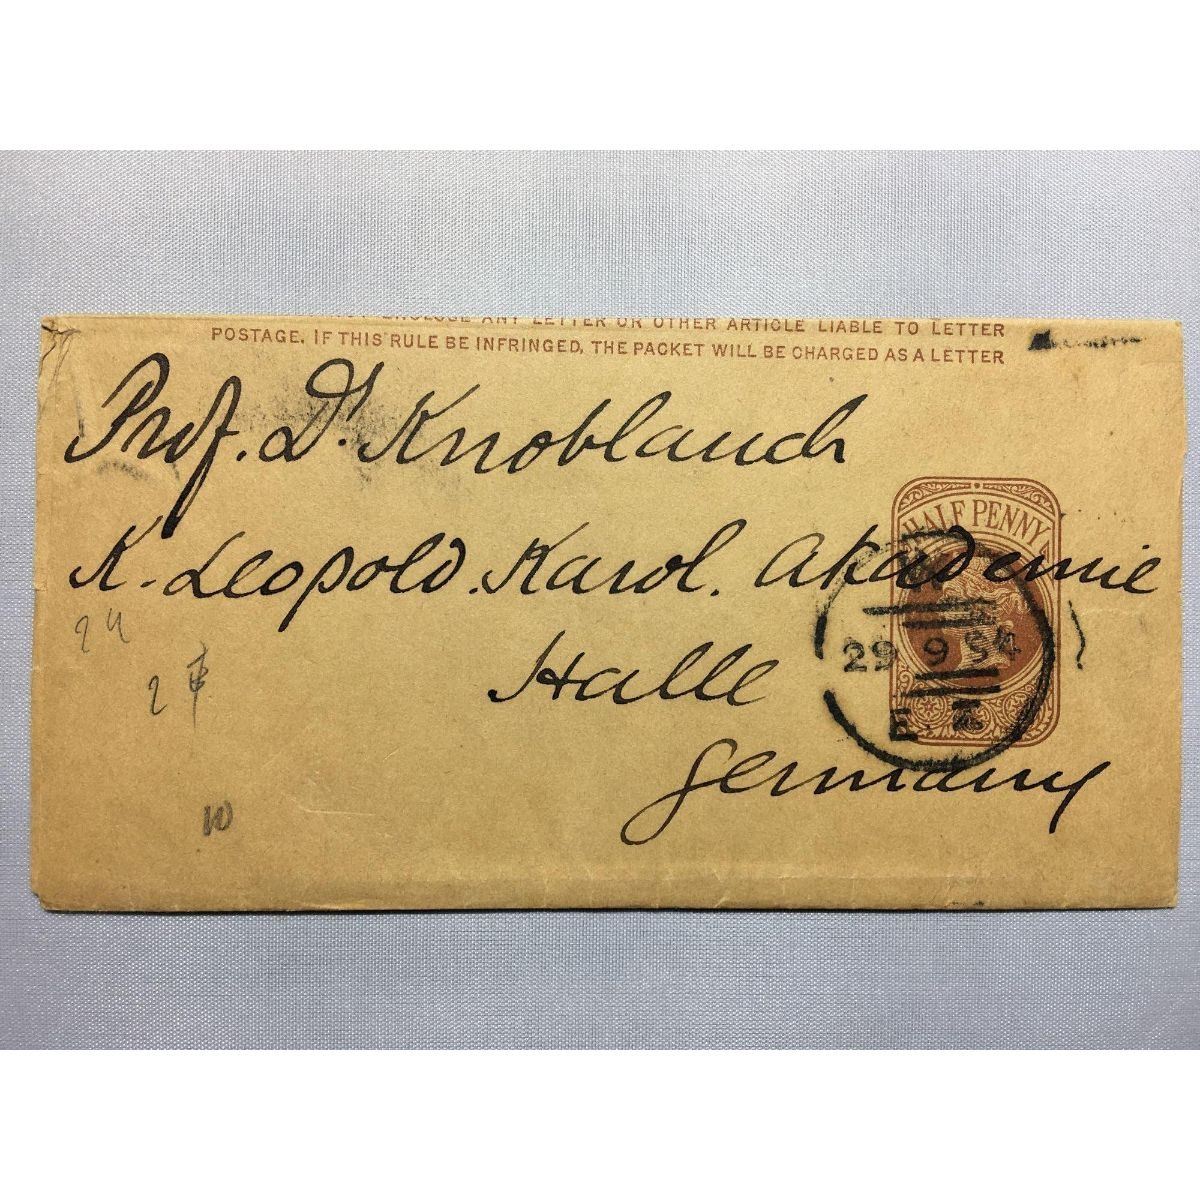 ENCLOSE ANY LETTER OR OTHER ARTICLE LIABLE TO LETTER
POSTAGE. IF THIS RULE BE INFRINGED, THE PACKET WILL BE CHARGED AS A LETTER
Prof. Dr. Knoblauch
K. Leopold. Karol. Akademie
Halle
Germany
HALF PENNY
29 9 94
E.
24
2
10